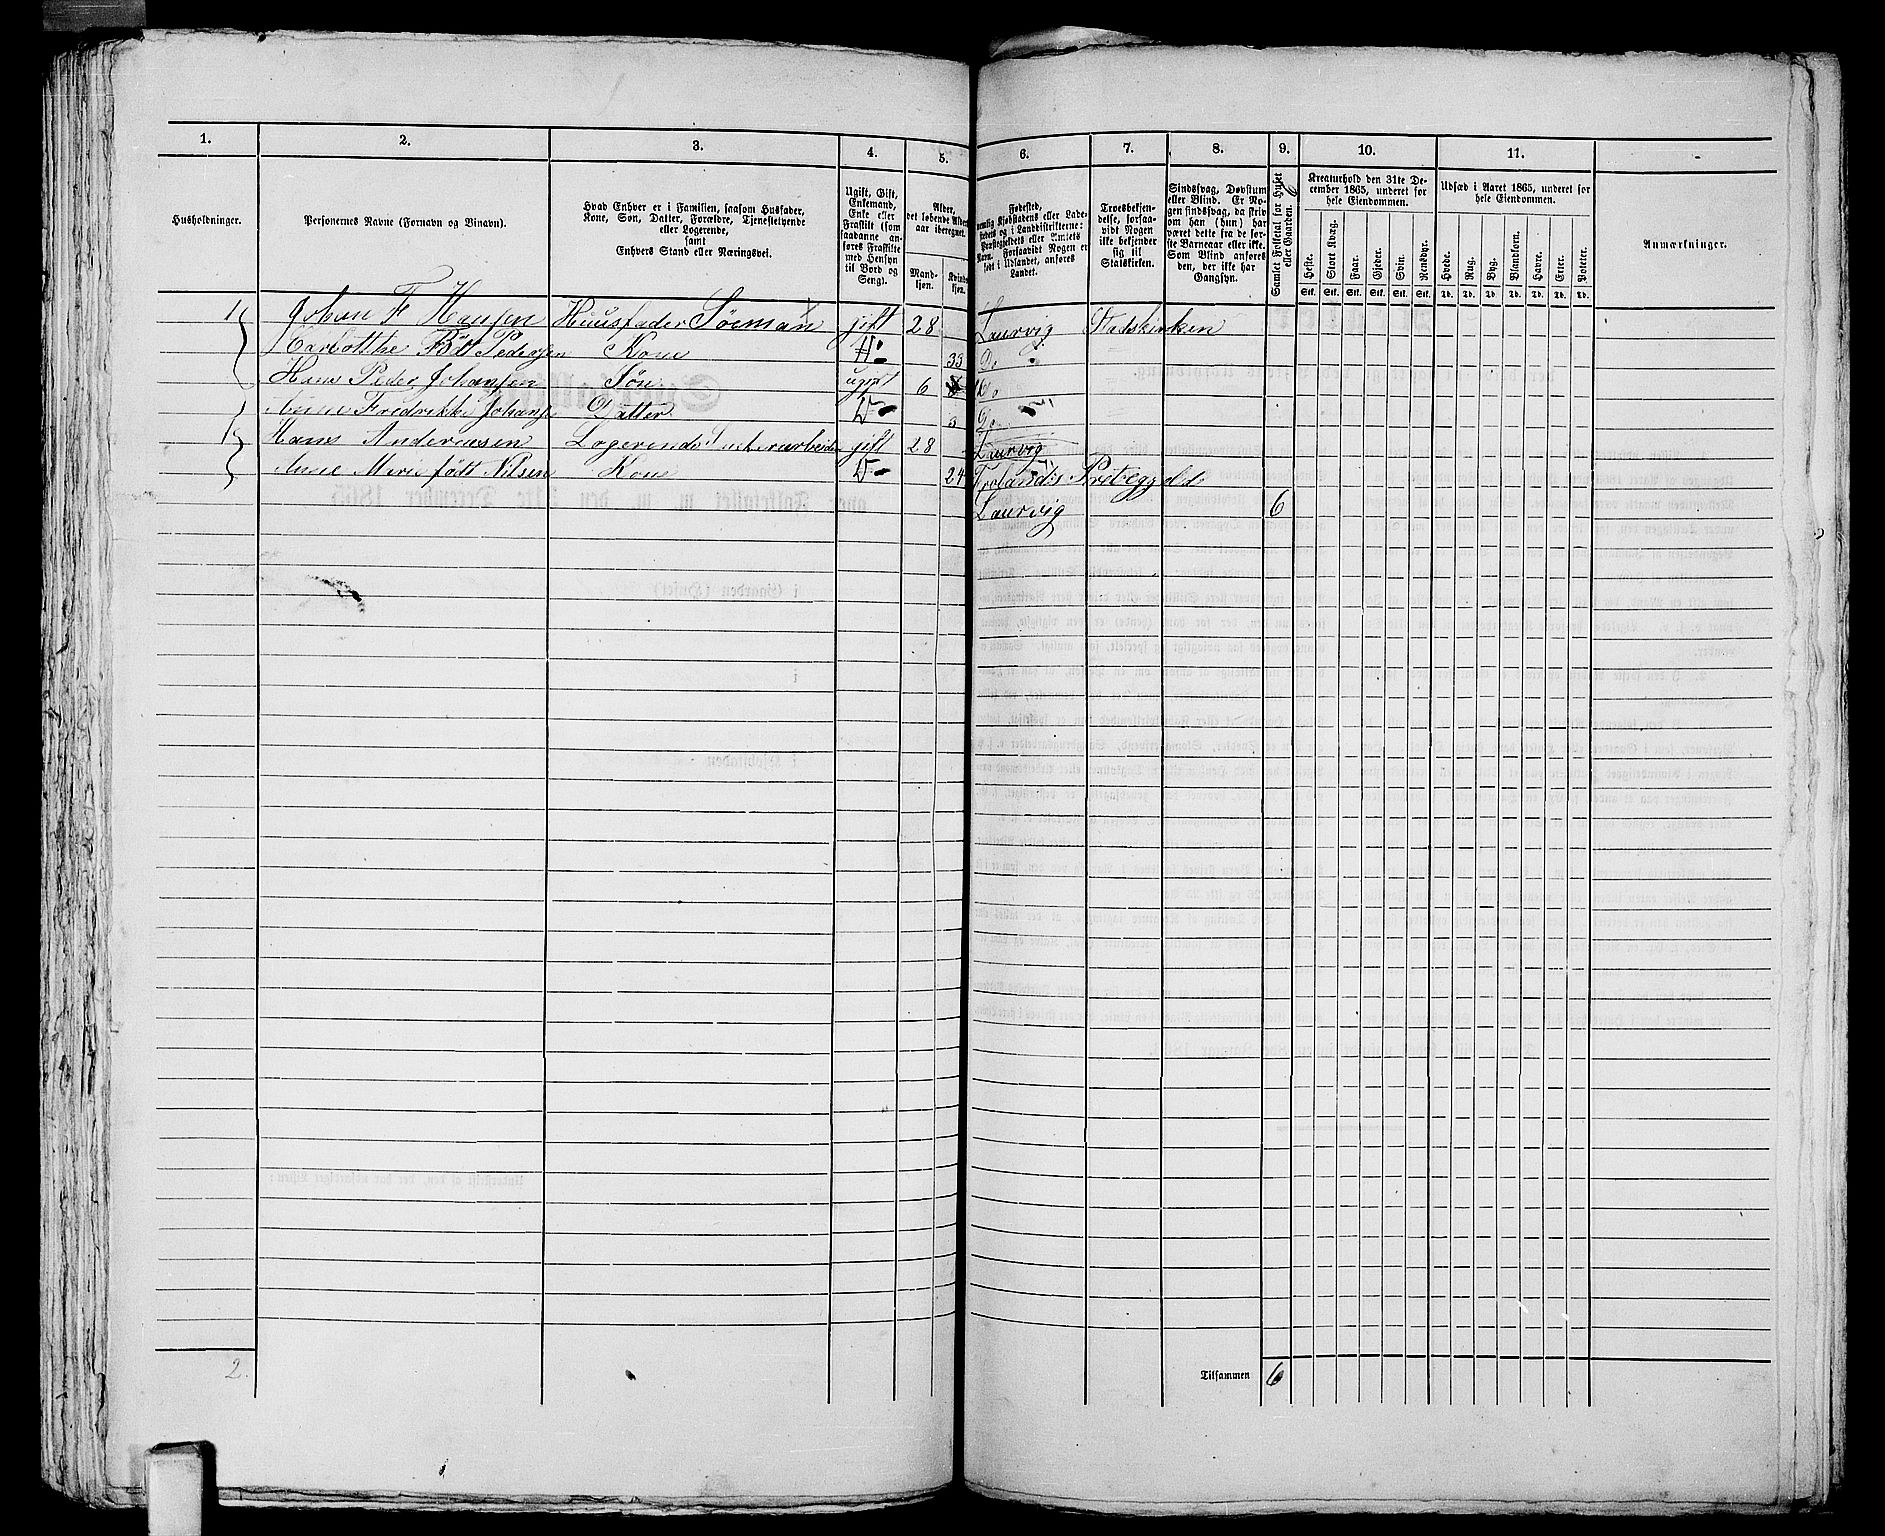 1. 2. 3. 4. 5. 6. 7. 8. 9. 10. 11.
Husholdninger.
Personernes Navne (Fornavn og Tilnavn).
Hvad Enhver er i Familien, saasom Husfader,
Kone, Søn, Datter, Forældre, Tjenestetyende
eller Logerende,
samt
Enhvers Stand eller Næringsvei.
Ugift, Gift,
Enkemand,
Enke eller
Fraskilt (som
saadanne an-
føres Fraskilte
med Hensyn
til Bord og
Seng).
Alder,
det løbende Alders-
aar iberegnet.
Mand-
kjøn.
Kvinde-
kjøn.
Fødested,
nemlig Kjøbstadens eller Lade-
stedets og i Landdistrikterne:
Præstegjeldets eller Amtets
Navn. Forsaavidt Nogen er
født i Udlandet, anføres
Landet.
Troesbekjen-
delse, forsaa-
vidt Nogen
ikke bekjender
sig til
Statskirken.
Sindssvag, Døvstum
eller Blind. Er No-
gen sindssvag, da skriv
om han (hun) har
været dette fra de før-
ste Barneaar eller ikke.
Som Blind anføres
den, der ikke har
Gangsyn.
Samlet Folketal for Huset
eller Gaarden. 6
Kreaturhold den 31te De-
cember 1865, underet for
hele Eiendommen.
Heste. Stort Kvæg. Faar. Gjeder. Svin. Rensdyr.
Stk. Stk. Stk. Stk. Stk. Stk.
Udsæd i Aaret 1865, underet for
hele Eiendommen.
Hvede. Rug. Byg. Blandkorn. Havre. Erter. Poteter.
Td. Td. Td. Td. Td. Td. Td.
Anmærkninger.
1 Johan F Hansen Huusfader Søeman gift 28 Laurvig Stadskirken
Födt Pedersen Kone 33 Do
Hans Peder Johansen Søn ugift 6 Do
Anne Fredrikke Johans Datter D 3 Do
1 Hans Andersen Logerende gift 28 Laurvig
Anne Marie födt Nilsen Kone D 24 Frolands Prestegjeld
Laurvig 6
2.
Tilsammen 6